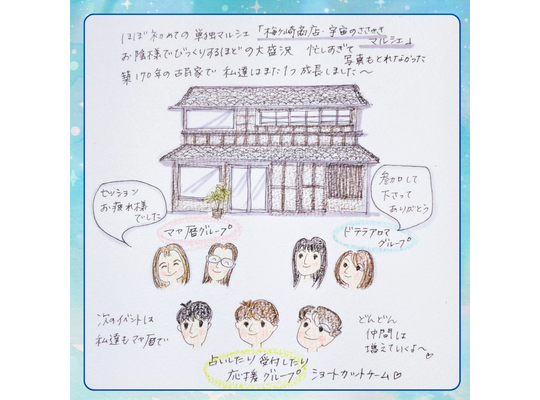 ほぼ初めての単独マルシェ「梅ヶ崎商店・宇宙のささやき
マルシェ」
お陰様でびっくりするほどの大盛況 忙しすぎて
写真もとれなかった
築170年の古民家で 私達はまた1つ成長しました〜
セッション
お疲れ様
でした
参加して
下さって
ありがとう
マヤ暦グループ
ドテラアロマ
グループ
次のイベントは
私達もマヤ暦で
どんどん
仲間は
増えていくよ〜♡
占いしたり受付したり
応援グループ ショートカットチーム♡